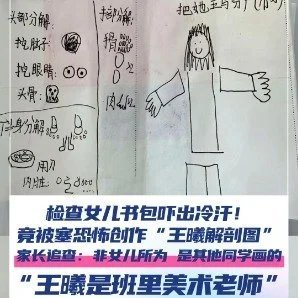 头部分解:
挖肚子
挖眼睛
头骨:
身分解
用刀
内脏:
检查女儿书包吓出冷汗!
竟被塞恐怖创作“王曦解剖图”
家长追查:非女儿所为 是其他同学画的
“王曦是班里美术老师”